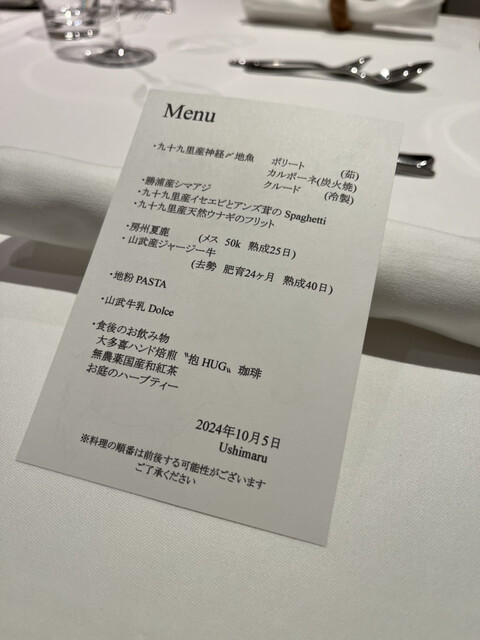 Menu
・九十九里産神経〆地魚 ボリート (茹)
カルボーネ(炭火焼)
クルード (冷製)
・勝浦産シマアジ
・九十九里産イセエビとアンズ茸の Spaghetti
・九十九里産天然ウナギのフリット
・房州夏鹿 (メス 50k 熟成25日)
・山武産ジャージー牛
(去勢 肥育24ヶ月 熟成40日)
・地粉 PASTA
・山武牛乳 Dolce
・食後のお飲み物
大多喜ハンド焙煎 〝抱 HUG〟 珈琲
無農薬国産和紅茶
お庭のハーブティー
2024年10月5日
Ushimaru
※料理の順番は前後する可能性がございます
ご了承ください